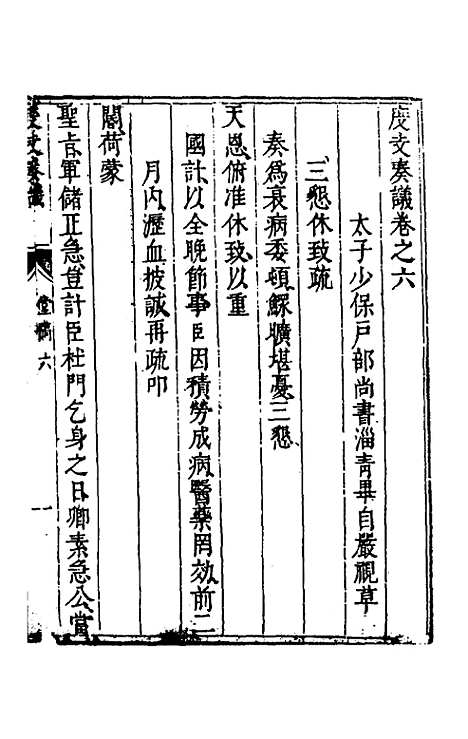 度支奏議卷之六
太子少保戶部尚書淄青畢自嚴視草
三懇休致疏
奏爲衰病委頓鰥曠堪憂三懇
天恩俯准休致以重
國計以全晚節事臣因積勞成病醫藥罔効前二
月內瀝血披誠再疏叩
閽荷蒙
聖旨軍儲正急豈計臣杜門乞身之日卿素急公當
度支奏議
堂稿六
一